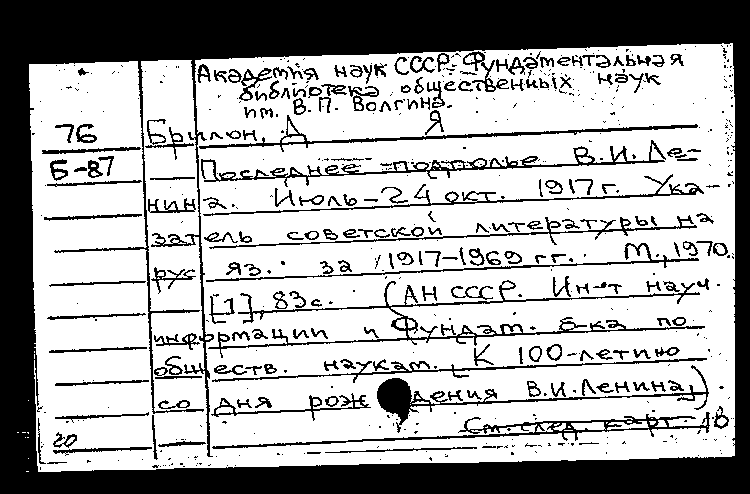 Академия наук СССР. Фундаментальная
библиотека общественных наук
им. В.П. Волгина.
76 Брилон, Д Я
Б-87 Последнее подполье В.И. Ле-
нина. Июль-24 окт. 1917г. Ука-
затель советской литературы на
рус яз. за 1917-1969 гг. М., 1970.
[1], 83с. (АН СССР. Ин-т науч.
информации и Фундам. б-ка по
обществ. наукам. [К 100-летию
со дня рождения В.И.Ленина])
См. след. карт.
20